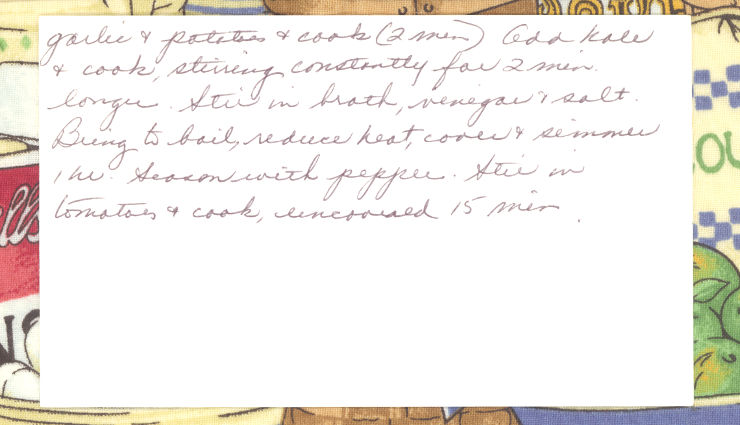 garlic & potatoes & cook (2 min) Add kale
& cook, stirring constantly for 2 min.
longer. Stir in broth, vinegar & salt.
Bring to boil, reduce heat, cover & simmer
1 hr. Season with pepper. Stir in
tomatoes & cook, uncovered 15 min